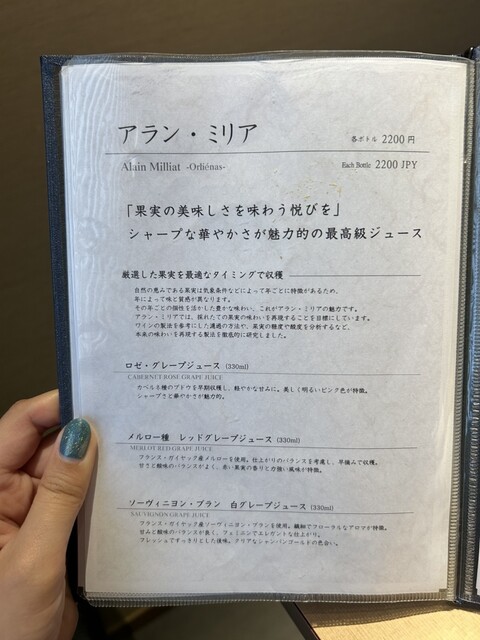 アラン・ミリア
各ボトル 2200 円
Alain Milliat -Orliénas-
Each Bottle 2200 JPY
「果実の美味しさを味わう悦びを」
シャープな華やかさが魅力的の最高級ジュース
厳選した果実を最適なタイミングで収穫
自然の恵みである果実は気象条件などによって年ごとに特徴があるため、
年によって味と質感が異なります。
その年ごとの個性を活かした豊かな味わい、これがアラン・ミリアの魅力です。
アラン・ミリアでは、採れたての果実の味わいを再現することを目標にしています。
ワインの製法を参考にした濾過の方法や、果実の糖度や酸度を分析するなど、
本来の味わいを再現する製法を徹底的に研究しました。
ロゼ・グレープジュース (330ml)
CABERNET ROSE GRAPE JUICE
カベルネ種のブドウを早期収穫し、軽やかな甘みに。美しく明るいピンク色が特徴。
シャープさと華やかさが魅力的。
メルロー種 レッドグレープジュース (330ml)
MERLOT RED GRAPE JUICE
フランス・ガイヤック産メルローを使用。仕上がりのバランスを考慮し、早摘みで収穫。
甘さと酸味のバランスがよく、赤い果実の香りと力強い風味が特徴。
ソーヴィニヨン・ブラン 白グレープジュース (330ml)
SAUVIGNON GRAPE JUICY
フランス・ガイヤック産ソーヴィニヨン・ブランを使用。繊細でフローラルなアロマが特徴。
甘みと酸味のバランスが良く、フェミニンでエレガントな仕上がり。
フレッシュですっきりとした後味。クリアなシャンパンゴールドの色合い。